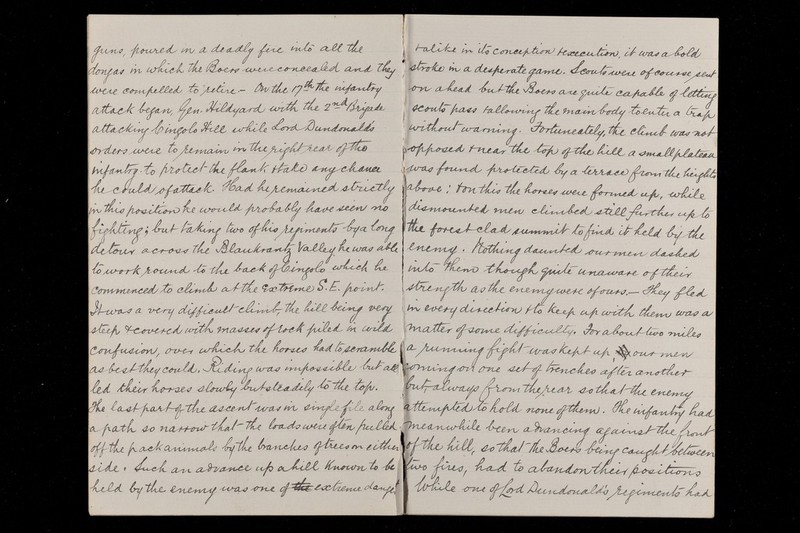 guns, poured in a deadly fire into all the
dongas in which the Boers were concealed and they
were compelled to retire - On the 17th the infantry
attack began, Gen. Hildyard with the 2nd Brigade
attacking Cingolo Hill while Lord Dundonald's
orders were to remain in the right rear of the
infantry to protect the flank & take any chance
he could of attack. Had he remained strictly
in this position he would probably have seen no
fighting; but taking two of his regiments by a long
detour across the Blaukrantz Valley he was able
to work round to the back of Cingolo which he
commenced to climb at the extreme S.E. point.
It was a very difficult climb, the hill being very
steep & covered with masses of rock piled in wild
confusion, over which the horses had to scramble
as best they could. Riding was impossible but all
led their horses slowly but steadily to the top.
The last part of the ascent was in single file along
a path so narrow that the loads were often pulled
off the pack animals by the branches of trees on either
side. Such an advance up a hill known to be
held by the enemy was one of the extreme danger
& alike in its conception & execution, it was a bold
stroke in a desperate game. Scouts were of course sent
on ahead but the Boers are quite capable of letting
scouts pass & allowing the main body to enter a trap
without warning. Fortuneately, the climb was not
opposed & near the top of the hill a small plateau
was found protected by a terrace from the heights
above; & on this the horses were formed up, while
dismounted men climbed still further up to
the forest clad summit to find it held by the
enemy. Nothing daunted our men dashed
into them though quite unaware of their
strength as the enemy were of ours. - They fled
in every direction & to keep up with them was a
matter of some difficulty. For about two miles
a running fight was kept up, our men
coming on one set of trenches after another
but always from the rear so that the enemy
attempted to hold none of them. The infantry had
meanwhile been advancing against the front
of the hill, so that the Boers being caught between
two fires, had to abandon their positions
While one of Lord Dundonald's regiments had